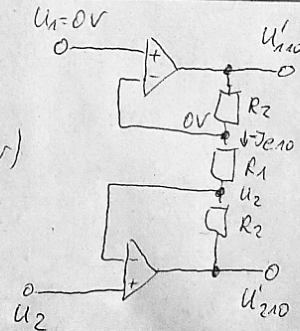 U₁=0V
+
−
U'₁₁₀
R₂
0V
↓-Je10
R₁
U₂
R₂
−
+
U'₂₁₀
U₂